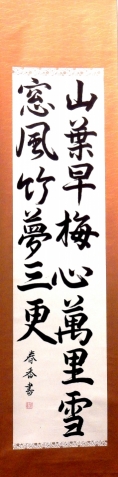 山葉早梅心萬里雪
窓風竹夢三更
春香書